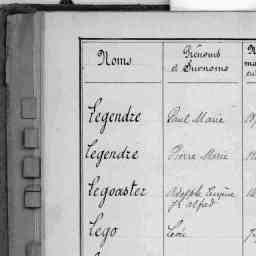 Noms
Prénoms
et Surnoms
Legendre
Paul Marie
Legendre
Pierre Marie
Legoaster
Adolphe Eugène
alfred
Lego